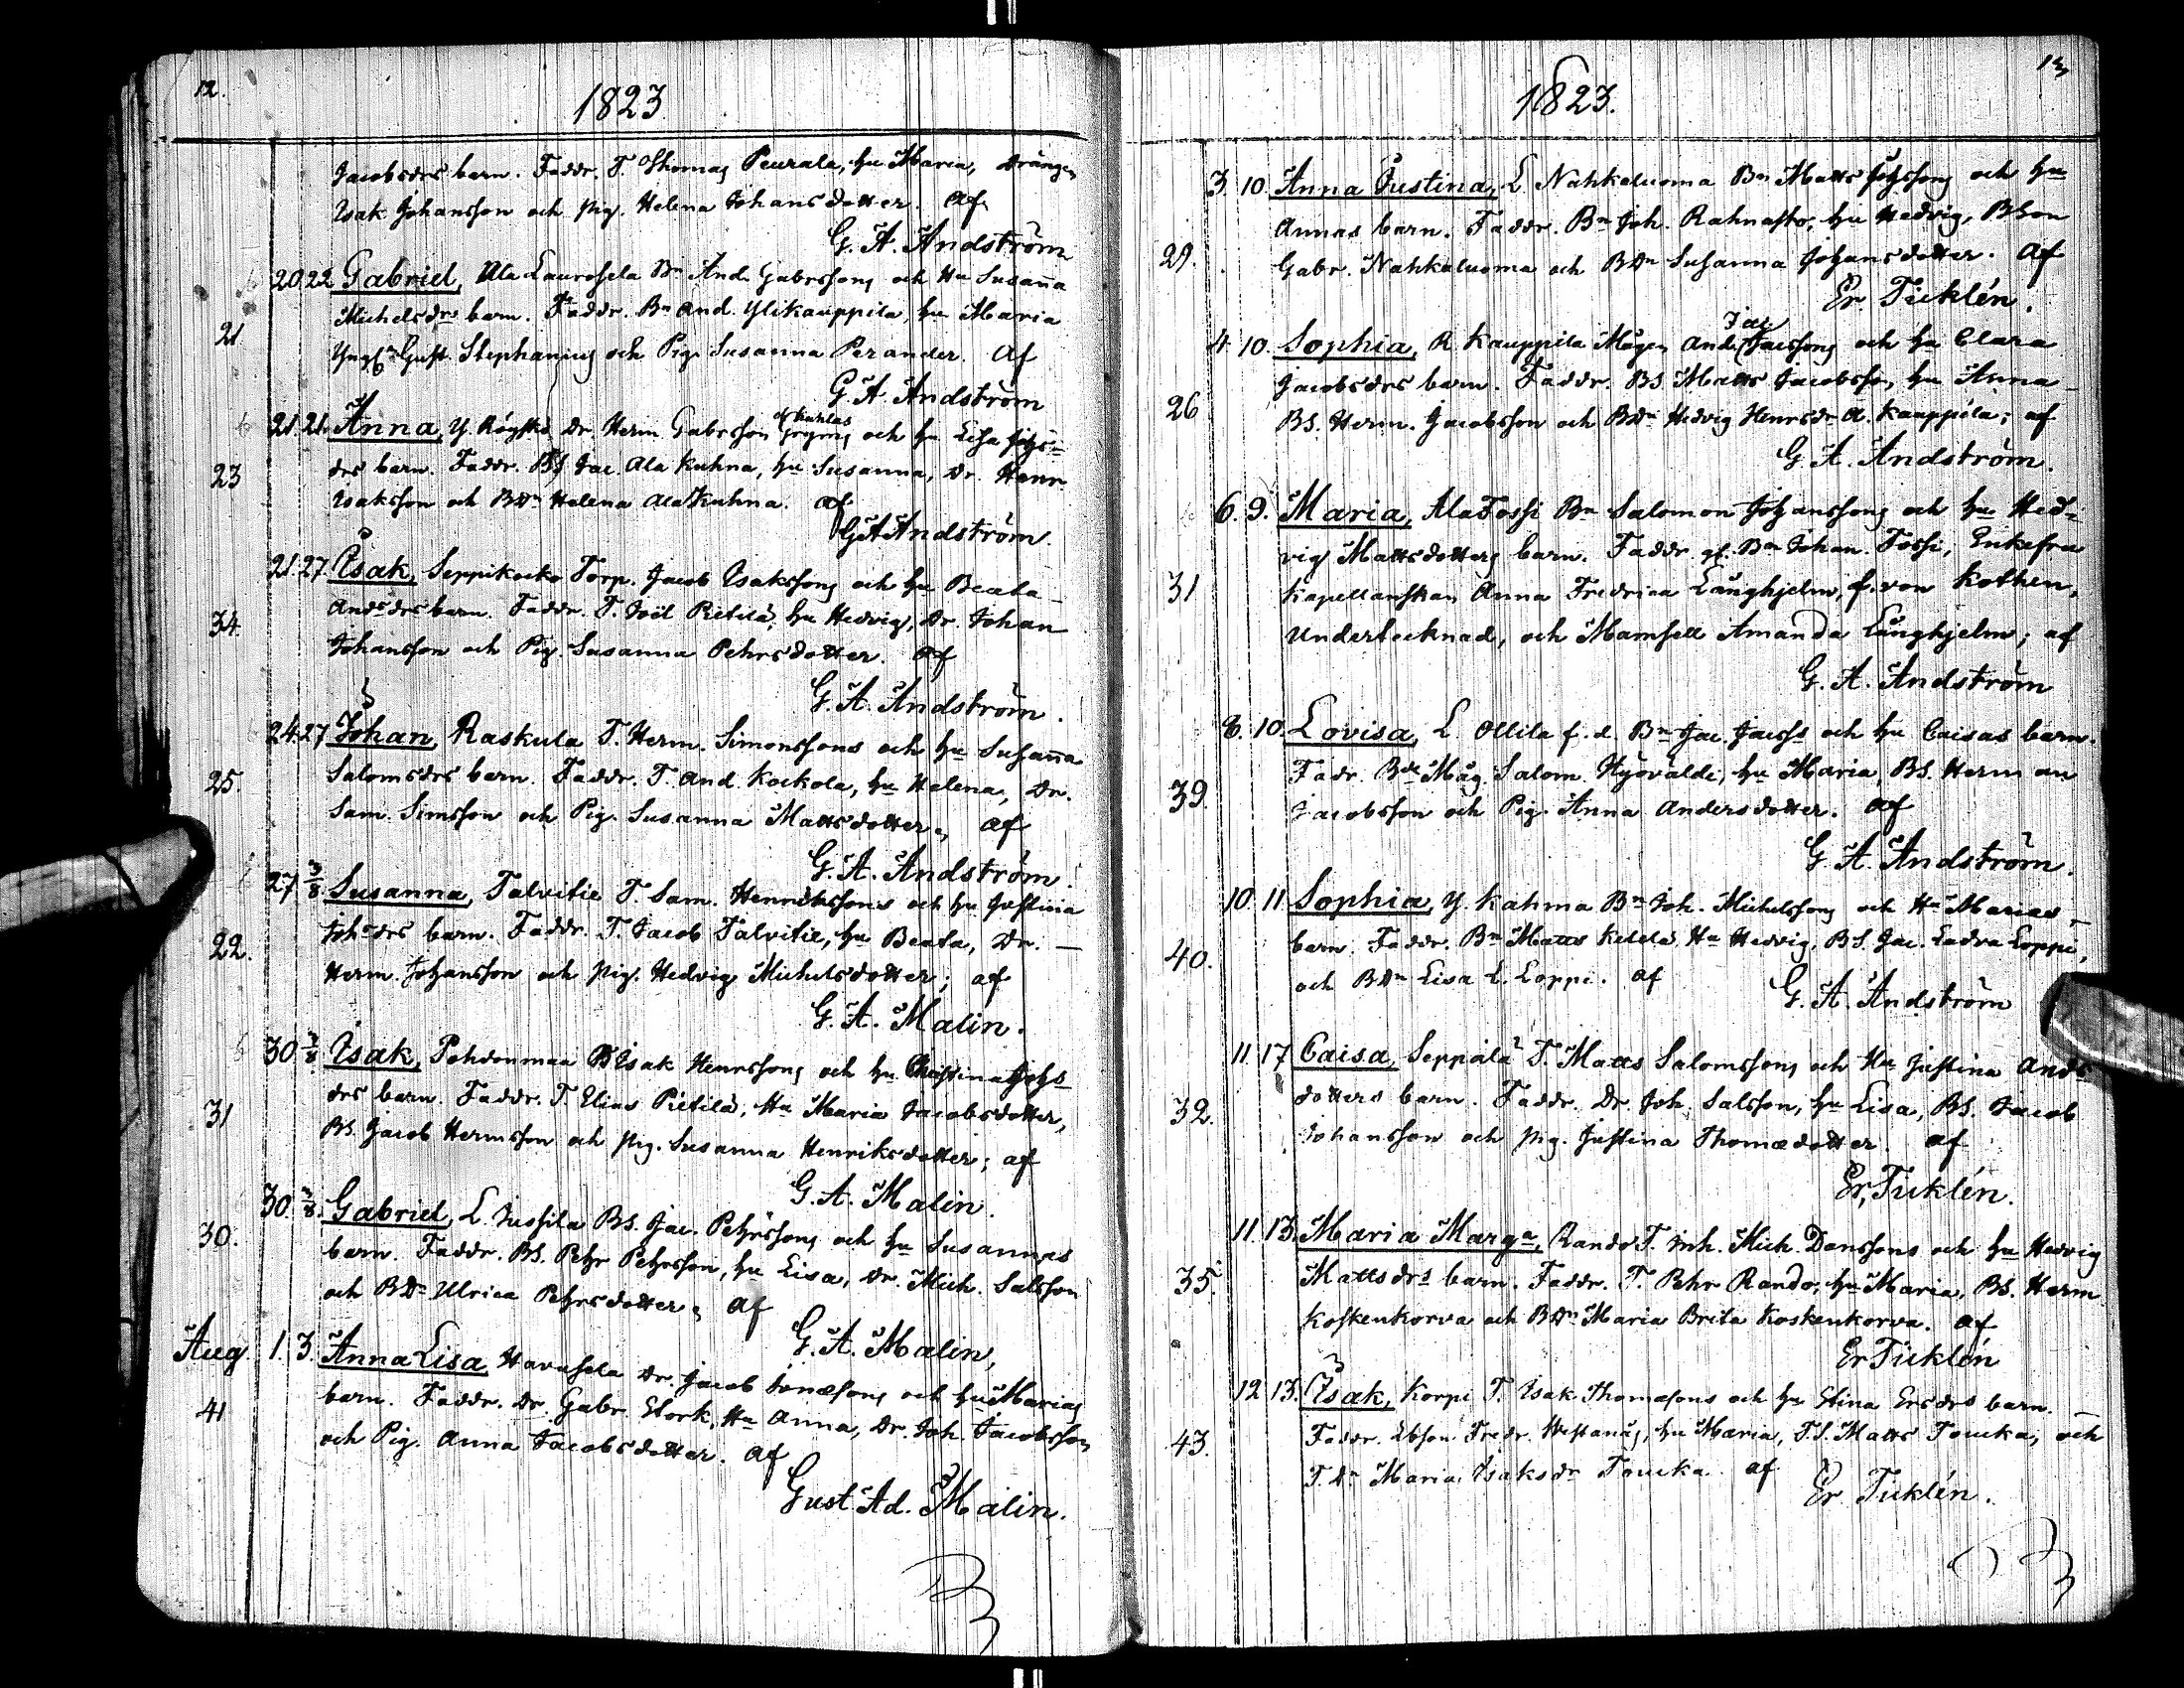 12.
1823
Jacobsdrs barn. Faddr. T. Thomas Peurala, hu Maria, Drängen
Isak Johansson och pig. Helena Johansdotter. Af
G. A. Andström
20. 22. Gabriel, Ala Laurosela Bn And. Gabrssons och Hu Susanna
21. Michelsdrs barn. Faddr. Bn And. Ylikauppila, hu Maria
Gust. Stephanius och Pig. Susanna Perander. Af
G. A. Andström
21. 21. Anna, Y. Dr. Herm. Gabrsson och hu Lisa Johs-
23 drs barn. Faddr. BS Jac. Ala Kuhna, hu Susanna, Dr. Henr.
Isaksson och BDr Helena Ala Kuhna. af
G A Andström.
21. 27. Isak, Seppikocko Torp. Jacob Isakssons och hu Beata
34. Andsdrs barn. Faddr. T. Joël Pietilä, hu Hedvig, Dr. Johan
Johansson och Pig. Susanna Pehrsdotter. af
G. A. Andström.
24. 27 Johan, Raskula T. Herm. Simonssons och hu Susanna
25. Salomsdrs barn. Faddr. T. And. Kockola, hu Helena, Dr.
Sam. Simsson och Pig. Susanna Mattsdotter, af
G. A. Andström.
27. 3/8 Susanna, Talvitie T. Sam. Henrikssons och hu Justina
22. Johsdrs barn. Faddr. T. Jacob Talvitie, hu Beata, Dr.
Herm. Johansson och pig. Hedvig Michelsdotter; af
G. A. Malin.
30. 3/8 Isak, Pohdonmaa BS Isak Henrssons och hu Christina Johs
31 drs barn. Faddr. T. Elias Pietilä, Hu Maria Jacobsdotter,
BS. Jacob Hermsson och pig. Susanna Henriksdotter; af
G. A. Malin.
30. 3/8. Gabriel, L. Jussila BS. Jac. Pehrssons och hu Susannas
30. barn. Faddr. BS. Pehr Pehrsson, hu Lisa, Dr. Mich. Salsson
och BDr Ulrica Pehrsdotter, af
G. A. Malin,
Aug. 1. 3. Anna Lisa, Havusela Dr. Jacob och hu Marias
41 barn. Faddr. Dr. Gabr. Stork, Hu Anna, Dr. Joh. Jacobsson
och Pig. Anna Jacobsdotter. af
Gust. Ad. Malin.
13
1823.
3. 10. Anna Justina, L. Nahkaluoma Bn Matts Johssons och hu
Annas barn. Faddr. Bn Joh. Rahnasto, hu Hedvig, BSon
29. Gabr. Nahkaluoma och BDn Susanna Johansdotter. Af
Er. Ticklén.
Jac
4. 10. Sophia, R. Kauppila Mågen And. Jacssons och hu Clara
26 Jacobsdrs barn. Faddr. BS. Matts Jacobsson, hu Anna
BS. Herm. Jacobsson och BDn Hedvig Henrsdr A. Kauppila; af
G. A. Andström.
6. 9. Maria, Ala Fossi Bn Salomon Johanssons och hu Hed-
vig Mattsdotters barn. Faddr. gl. Bn Johan. Fossi, Enkefru
31 Kapellanskan Anna Fredrica Ljunghjelm, f. von Kothen,
Undertecknad, och Mamsell Amanda Ljunghjelm; af
G. A. Andström
8. 10. Lovisa, L. Ollila f. d. Bn Jac. Jacss och hu Caisas barn.
39. Fadr. Bde Måg. Salom. Hyövälde, hu Maria, BS. Herman
Jacobsson och Pig. Anna Andersdotter. af
G. A. Andström.
10. 11. Sophia, Y. Kahma Bn Joh. Michelssons och Hu Marias
40. barn. Faddr. Bn Matts Keltilä, Hu Hedvig, BS. Jac. Ladva Loppi,
och BDn Lisa L. Loppi. af
G. A. Andström
11. 17 Caisa, Seppälä T. Matts Salomssons och Hu Justina Ands
32. dotters barn. Faddr. Dr. Joh. Salsson, hu Lisa, BS. Jacob
Johansson och pig. Justina Thomædotter. af
Er, Ticklén.
11. 13. Maria Marga, Rando T. Inh. Mich. Danssons och hu Hedvig
35. Mattsdrs barn. Faddr. T. Pehr Rando, hu Maria, BS. Herm.
Koskenkorva och BDr Maria Brita Koskenkorva. af
Er Ticklén
12 13. Isak, Korpi T. Isak Thomæsons och hu Stina Ersdrs barn.
43. Faddr. Fredr. Westanås, hu Maria, T.S. Matts Toucka, och
T. Dr Maria Isaksdr Toucka. af
Er Ticklén.